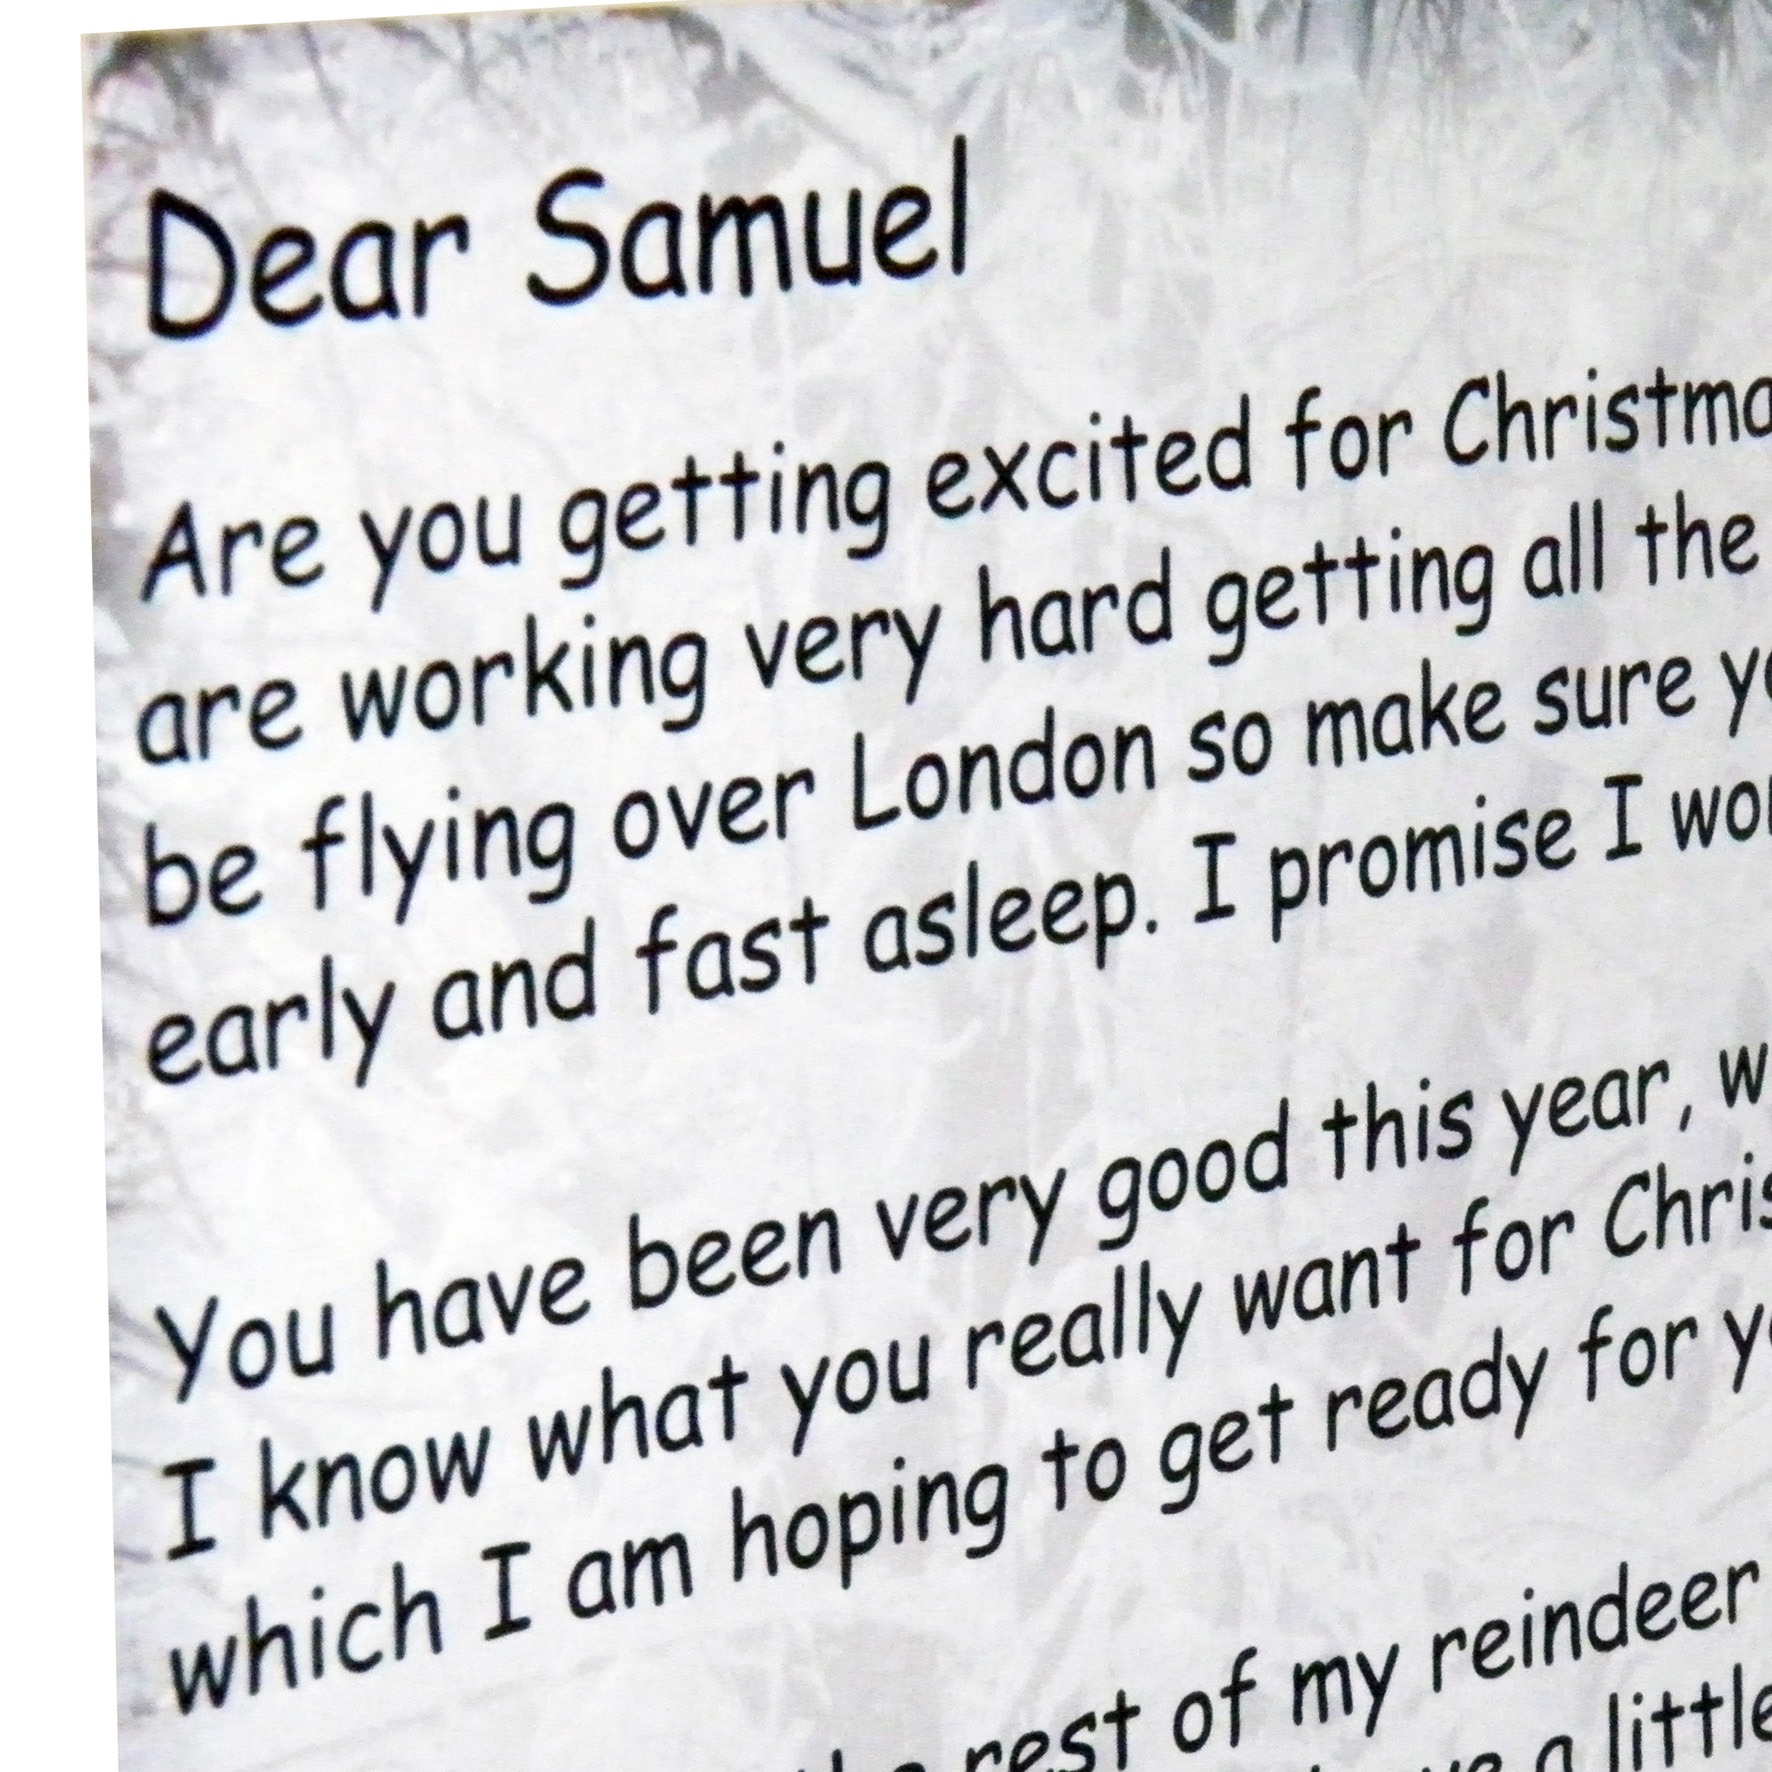 Dear Samuel
Are you getting excited for
are working very hard getting all the
be flying over London so make sure
early and fast asleep. I promise I
You have been very good this year,
I know what you really want for
which I am hoping to get ready for
rest of my reindeer
a little